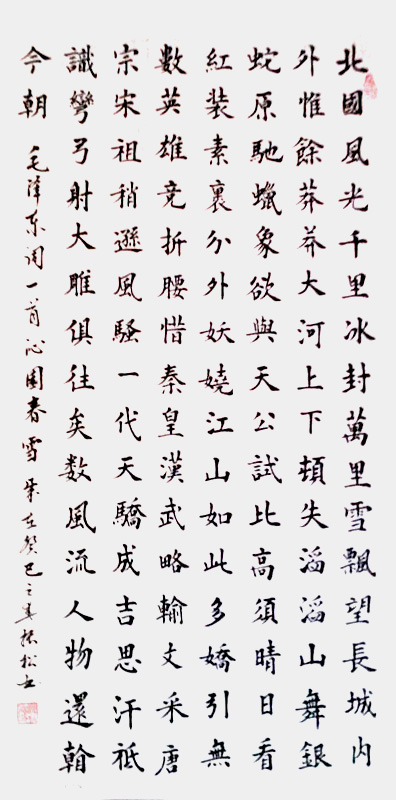 北國風光千里冰封萬里雪飄望長城内
外惟餘莽莽大河上下頓失滔滔山舞銀
蛇原馳蠟象欲與天公試比高須晴日看
紅装素裹分外妖嬈江山如此多嬌引無
數英雄竞折腰惜秦皇漢武略輸文采唐
宗宋祖稍遜風騷一代天驕成吉思汗祗
識彎弓射大雕俱往矣数風流人物還翰
今朝 毛泽东词一首沁園春雪 歲在癸巳之松书